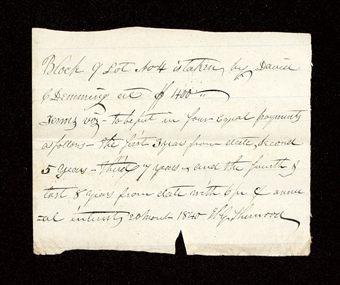 Block 9 Lot No 4 is taken by David
C Demming at $400..
Terms viz - to be put in four equal payments
as follows - the first 3 years from date, second
5 years - third 7 years and the fourth &
last 8 years from date with 6 pr c annu
-al interest, 1840 Sherwood